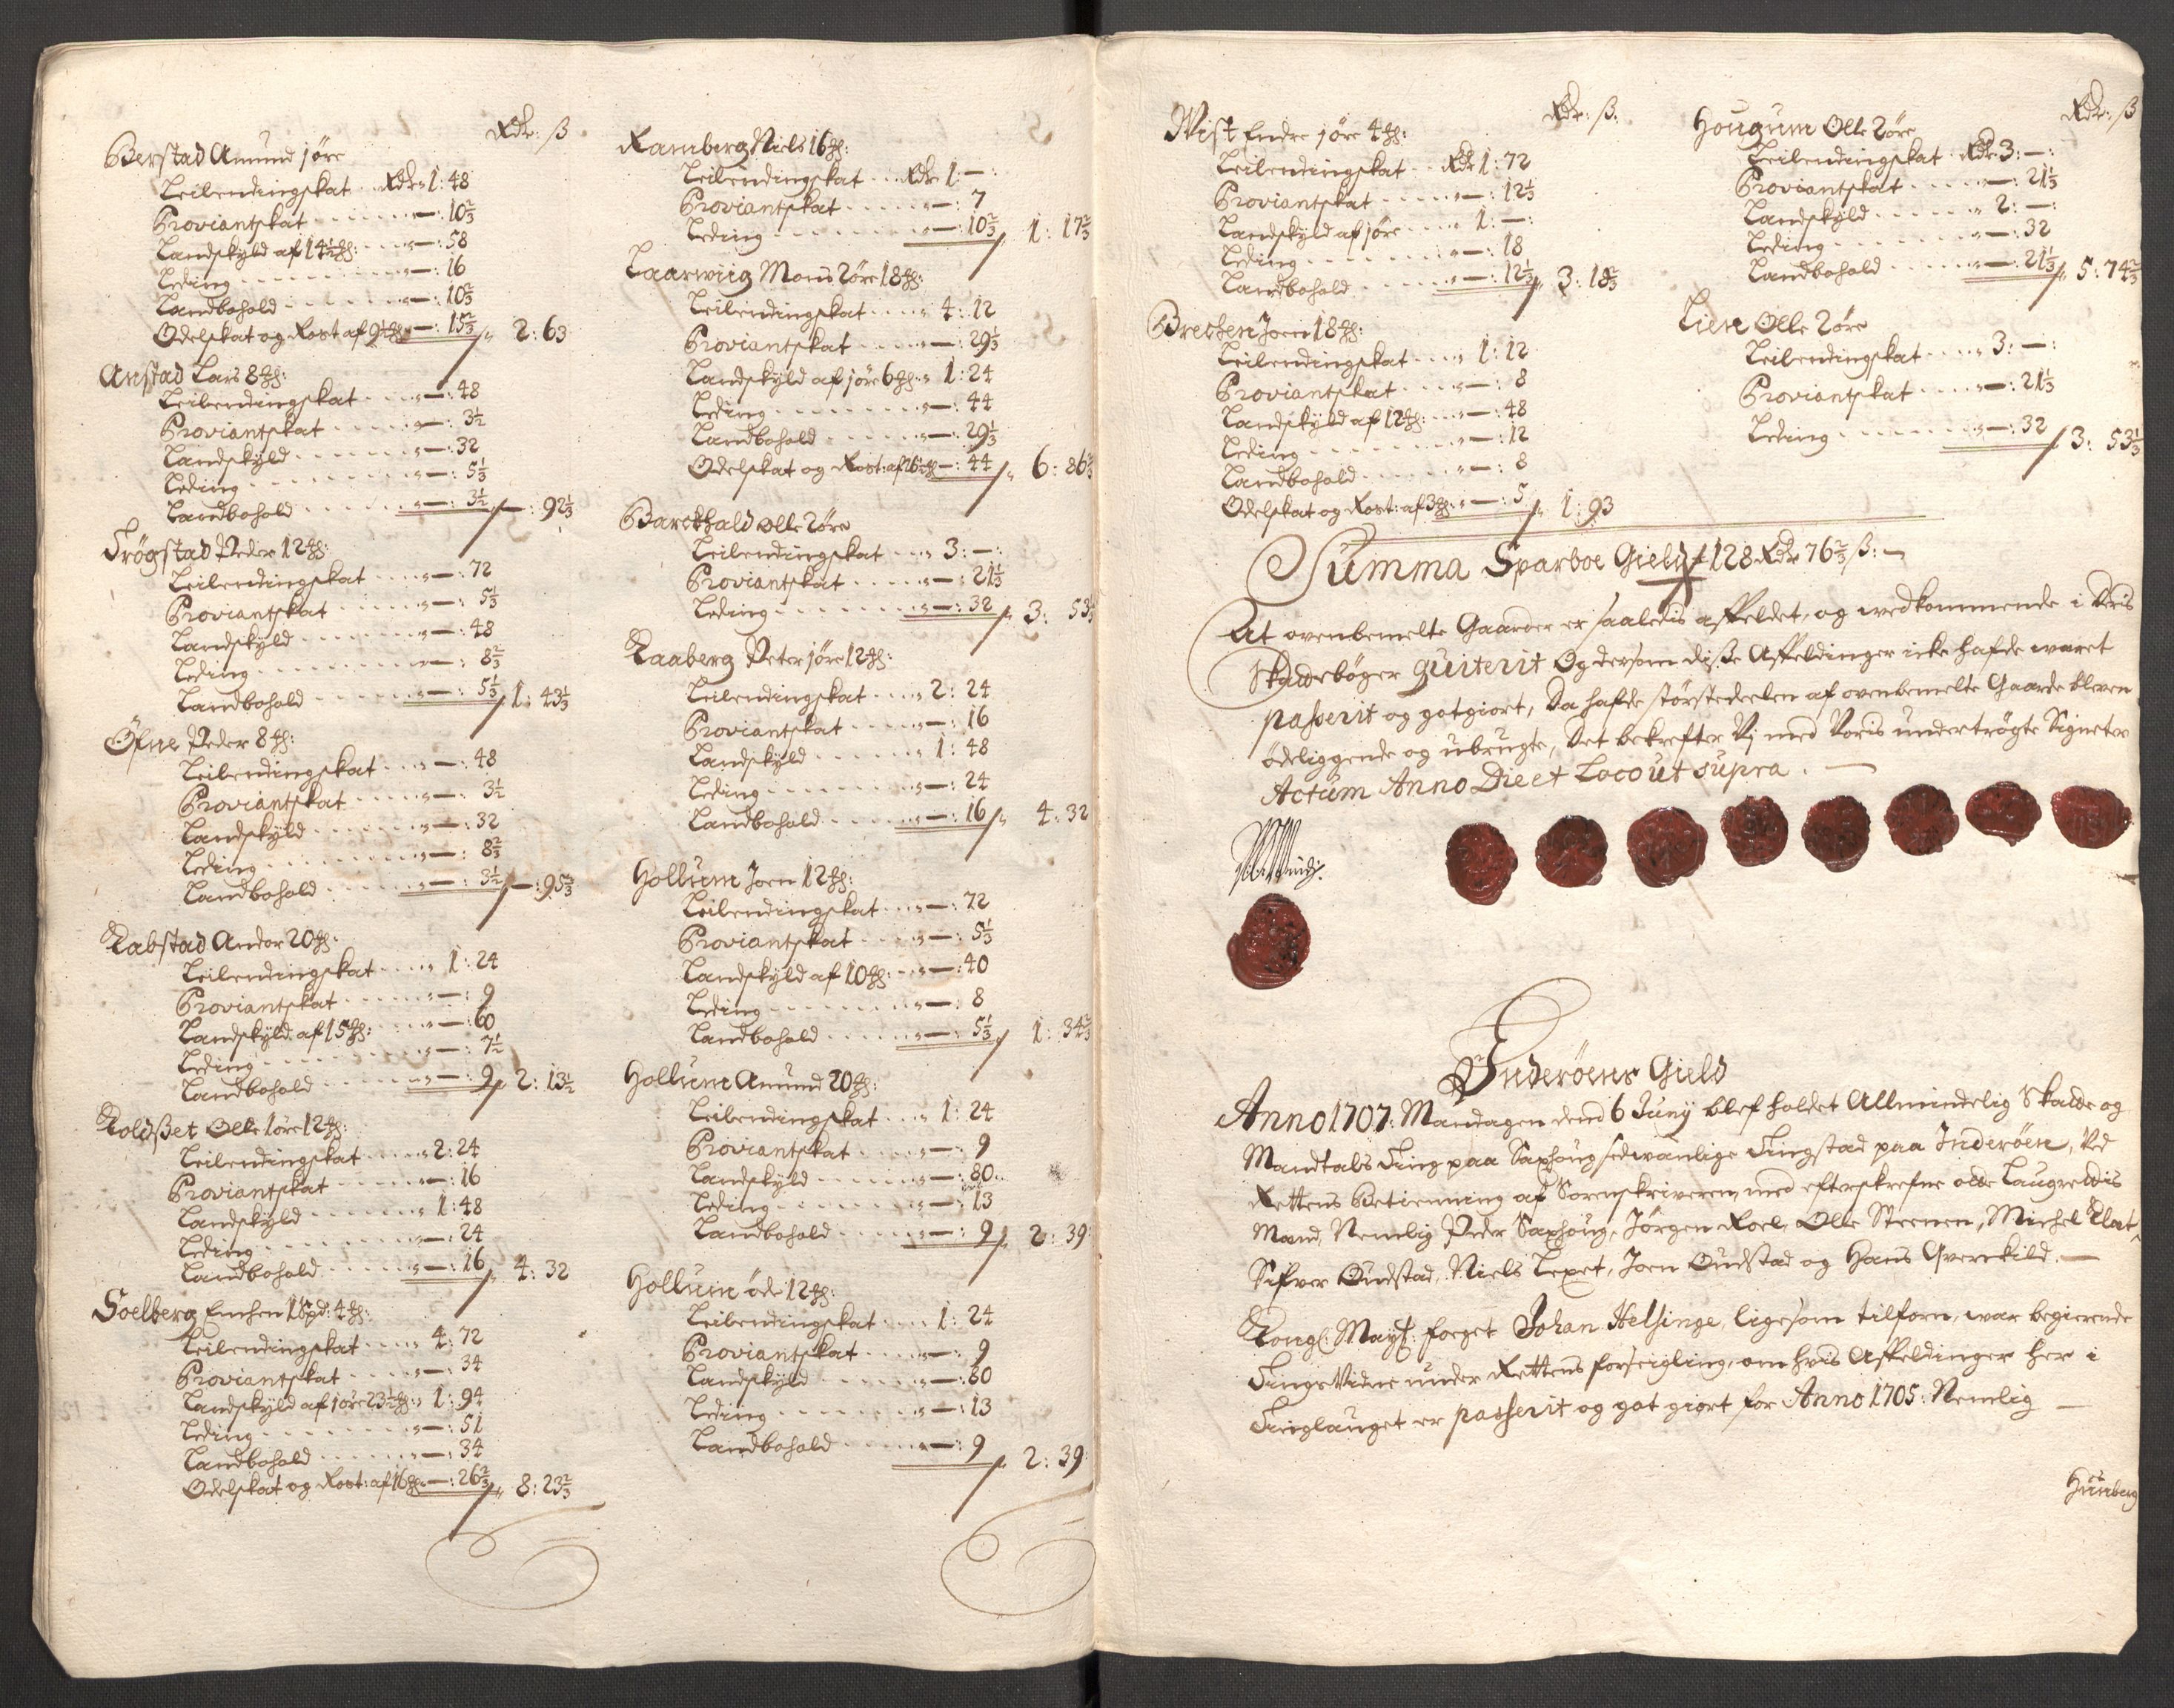 Rdr: ß
Berstad Amund 1 øre
Leilendingskat Rdr 1: 48
Proviantskat —: 10 2/3
Landskyld af 14 1/2 —: 58
Leding —: 16
Landbohold —: 10 2/3
Odelskat og Rost af 9 1/2 —: 15 2/3 2: 63
Anstad Lars 8
Leilendingskat —: 48
Proviantskat —: 3 1/2
Landskyld —: 32
Leding —: 5 1/3
Landbohold —: 3 1/2 —: 92 1/3
Frøgstad Peder 12
Leilendingskat —: 72
Proviantskat —: 5 1/3
Landskyld —: 48
Leding —: 8 2/3
Landbohold —: 5 1/3 1: 43 1/3
Øfne Peder 8
Leilendingskat —: 48
Proviantskat —: 3 1/2
Landskyld —: 32
Leding —: 8 2/3
Landbohold —: 3 1/2 —: 95 2/3
Kabstad Andor 20
Leilendingskat 1: 24
Proviantskat —: 9
Landskyld af 15 —: 60
Leding —: 7 1/2
Landbohold —: 9 2: 13 1/2
Koldset Olle 1 øre 12
Leilendingskat 2: 24
Proviantskat —: 16
Landskyld 1: 48
Leding —: 24
Landbohold —: 16 4: 32
Soelberg 1 Spd: 4
Leilendingskat 4: 72
Proviantskat —: 34
Landskyld af 1 øre 23 1/2 1: 94
Leding —: 51
Landbohold —: 34
Odelskat og Rost: af 16 —: 26 2/3 8: 23 2/3
Ramberg Niels 16
Leilendingskat Rdr 1: —:
Proviantskat —: 7
Leding —: 10 2/3 1: 17 2/3
Laarwiig Mons 2 øre 18
Leilendingskat 4: 12
Proviantskat —: 29 1/3
Landskyld af 1 øre 6 1: 24
Leding —: 44
Landbohold —: 29 1/3
Odelskat og Rost: af 26 1/2 —: 44 6: 86 2/3
Barckhald Olle 2 øre
Leilendingskat 3: —:
Proviantskat —: 21 1/3
Leding —: 32 3: 53 1/3
Kaaberg Peter 1 øre 12
Leilendingskat 2: 24
Proviantskat —: 16
Landskyld 1: 48
Leding —: 24
Landbohold —: 16 4: 32
Hollum Joen 12
Leilendingskat —: 72
Proviantskat —: 5 1/3
Landskyld af 10 —: 40
Leding —: 8
Landbohold —: 5 1/3 1: 34 2/3
Hollum Amund 20
Leilendingskat 1: 24
Proviantskat —: 9
Landskyld —: 80
Leding —: 13
Landbohold —: 9 2: 39
Hollum øde 12
Leilendingskat 1: 24
Proviantskat —: 9
Landskyld —: 80
Leding —: 13
Landbohold —: 9 2: 39
Rdr: ß:
Wist Endre 1 øre 4
Leilendingskat Rdr 1: 72
Proviantskat —: 12 1/3
Landskyld af 1 øre 1: —:
Leding —: 18
Landbohold —: 12 1/3 3: 18 2/3
Brechen Joen 18
Leilendingskat 1: 12
Proviantskat —: 8
Landskyld af 12 —: 48
Leding —: 12
Landbohold —: 8
Odelskat og Rost: af 3 —: 5 1: 93
Rdr: ß
Hougum Olle 2 øre
Leilendingskat Rdr 3: —:
Proviantskat —: 21 1/3
Landskyld 2: —:
Leding —: 32
Landbohold —: 21 1/3 5: 74 2/3
Lien Olle 2 øre
Leilendingskat 3: —:
Proviantskat —: 21 1/3
Leding —: 32 3: 53 1/3
Summa Sparboe Gield 128 Rdr 76 2/3 ß: —
At ovenbemelte Gaarder er saaledis affeldet, og wedkommende i deris
Skattebøger quiterit Og dersom diße Affeldinger icke hafde waret
passerit og gotgiort, Da hafde størstedeelen af ovenbemelte Gaarde bleven
ødeliggende og ubrugte, Det bekrefter Vj med Voris undertrøgte Signeter
Actum Anno Die et Loco ut supra. —
Inderöens Gield
Anno 1707. Mandagen dend 6 Juny blef holdet Allmindelig Skatte og
Mandtals Ting paa Saxhoug sedwanlige Tingstad paa Inderöen, Ved
Rettens Betienning af Sorenskriveren, med efterskrefne otte Laugrettis
Mænd, Nemlig Peder Saxhoug, Jørgen Roel, Olle Steenen, Michel Klat,
Sifver Oudstad, Niels Lexet, Joen Oudstad og Hans Quertild. —
Kongl: Mayts: foeget Johan Helsinge, ligesom tilforn, war begierende
Tings Vidne under Rettens forseigling, om hvis Affeldinger her i
Tinglauget er passerit og got giort for Anno 1705. Nemlig —
Hunberg